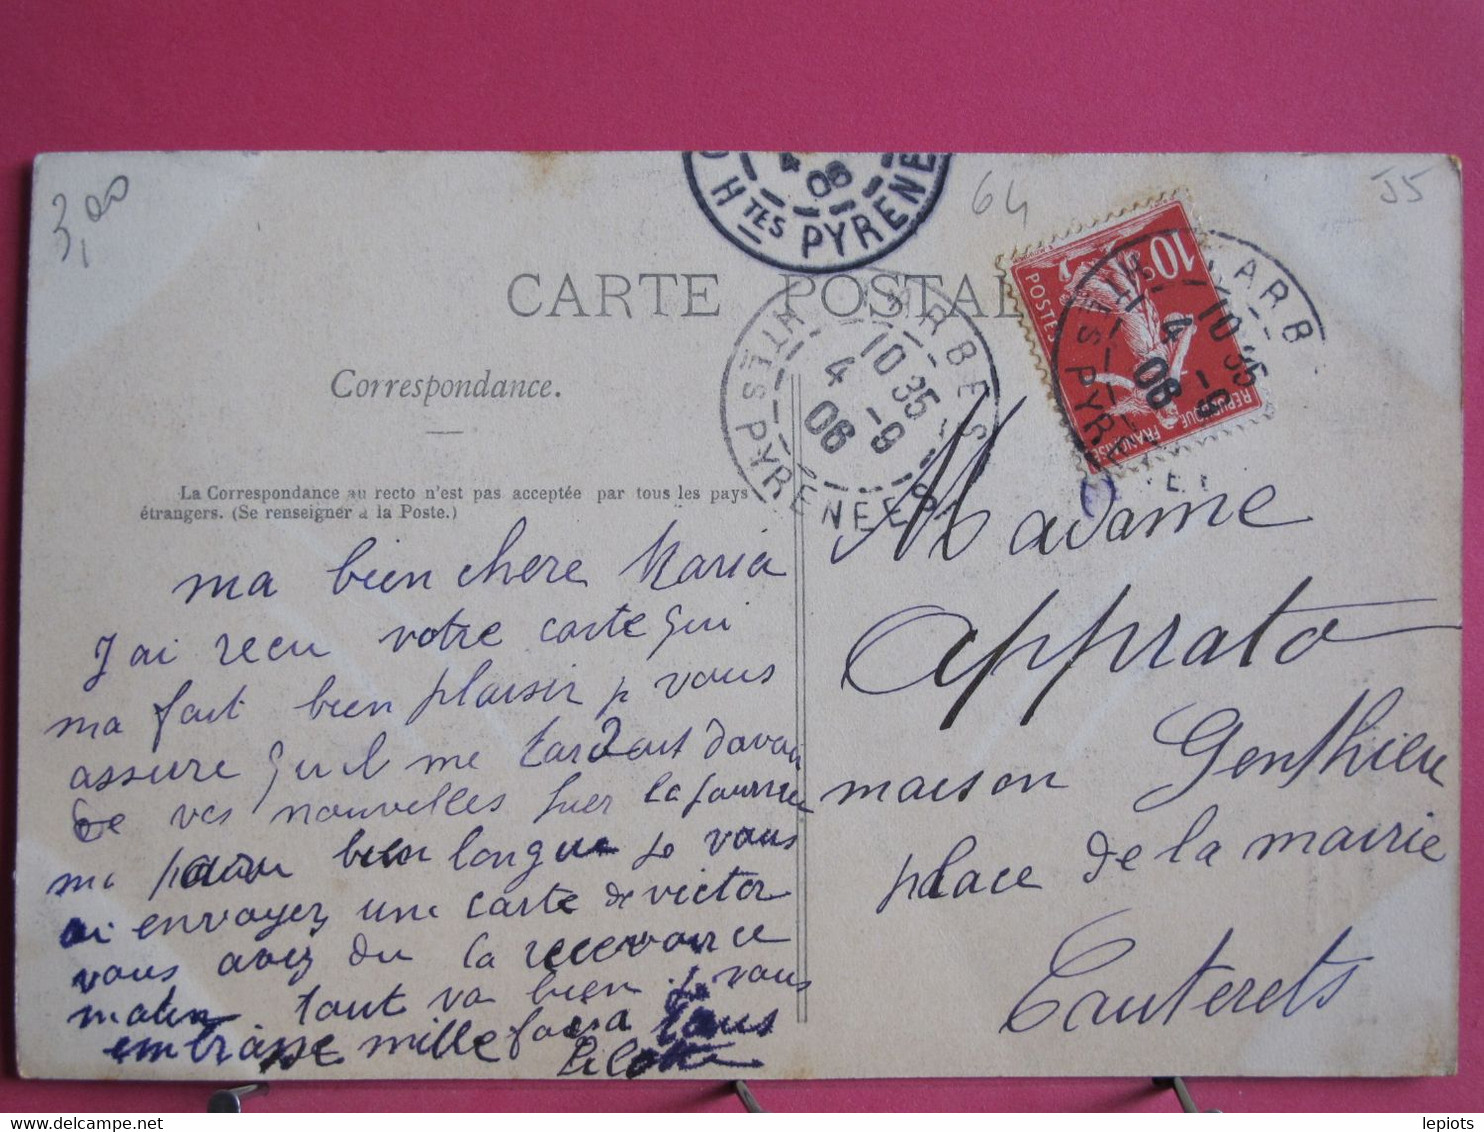 3,00
64
55
4
06
HTES PYRENE
CARTE POSTAL
ARBES
10 35
4 -9
06
HTES PYRÉNÉES
10
POSTES
REPUBLIQUE FRANÇAISE
ARB
10 35
4 -9
06
HTES PYR
Correspondance.
La Correspondance au recto n'est pas acceptée par tous les pays
étrangers. (Se renseigner à la Poste.)
ma bien chere Maria
J'ai recu votre carte qui
ma fait bien plaisir je vous
assure qu'il me tardait davoir
de vos nouvelles hier la journee
ma paru bien longue je vous
ai envoyez une carte de victor
vous avez du la recevoir ce
matin tout va bien je vous
embrasse mille fois a tous
Madame
Apprato
maison Genthieu
place de la mairie
Cauterets
lepiots